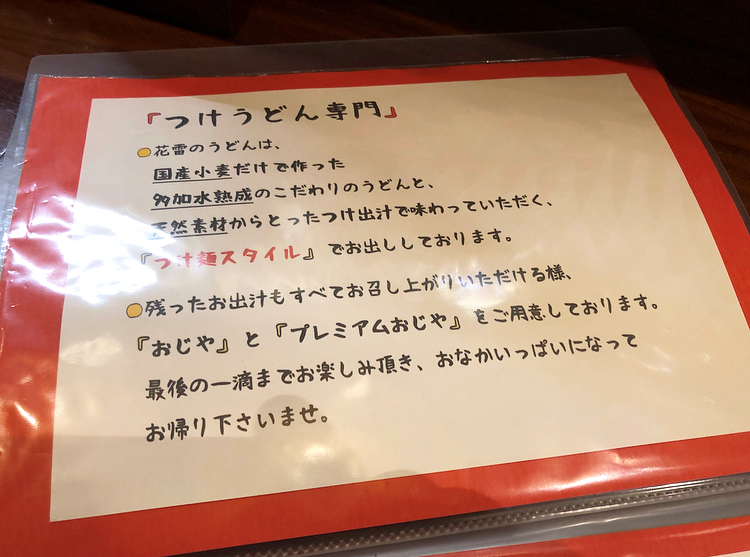 『つけうどん専門』
花雷のうどんは、
国産小麦だけで作った
多加水熟成のこだわりのうどんと、
天然素材からとったつけ出汁で味わっていただく、
『つけ麺スタイル』でお出ししております。
残ったお出汁もすべてお召し上がりいただける様、
『おじや』と『プレミアムおじや』をご用意しております。
最後の一滴までお楽しみ頂き、おなかいっぱいになって
お帰り下さいませ。